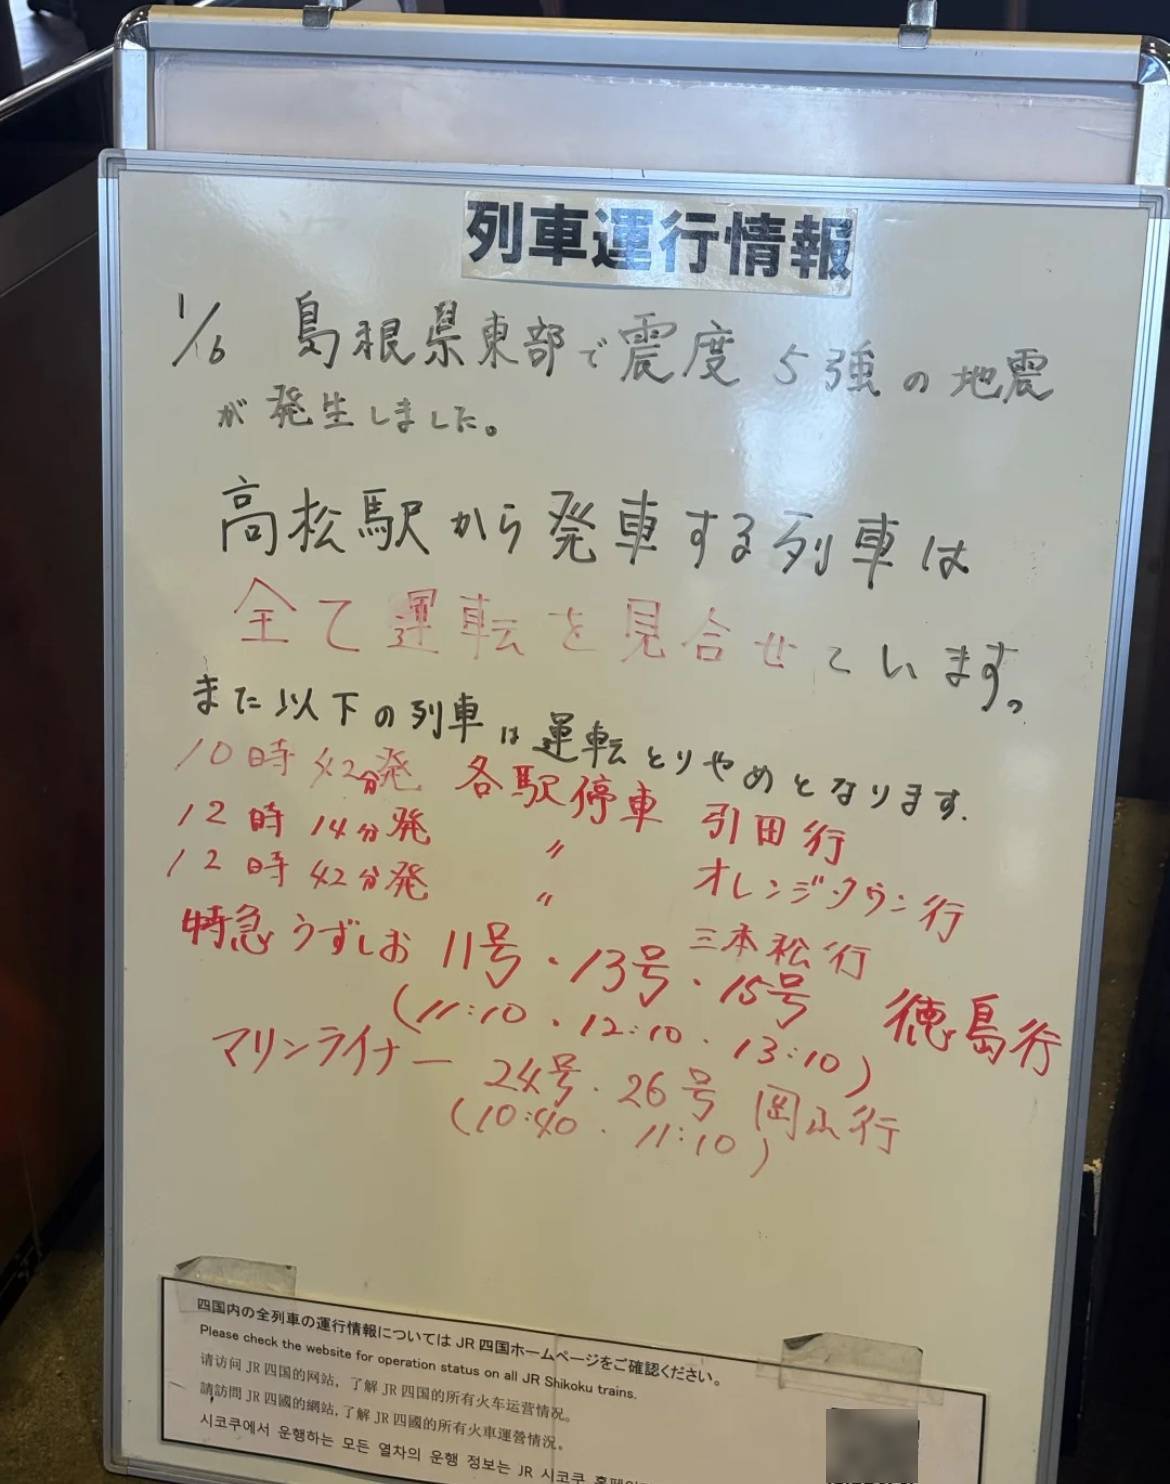 列車運行情報
1/6 島根県東部で震度5強の地震
が発生しました。
高松駅から発車する列車は
全て運転を見合せています。
また以下の列車は運転とりやめとなります.
10時42分発 各駅停車 引田行
12時14分発 〃 オレンジタウン行
12時42分発 〃 三本松行
特急うずしお 11号・13号・15号 徳島行
(11:10・12:10・13:10)
マリンライナー 24号・26号 岡山行
(10:40・11:10)
四国内の全列車の運行情報についてはJR四国ホームページをご確認ください。
Please check the website for operation status on all JR Shikoku trains.
请访问JR四国的网站，了解JR四国的所有火车运营情况。
請訪問JR四國的網站，了解JR四國的所有火車運營情況。
시코쿠에서 운행하는 모든 열차의 운행 정보는 JR 시코쿠